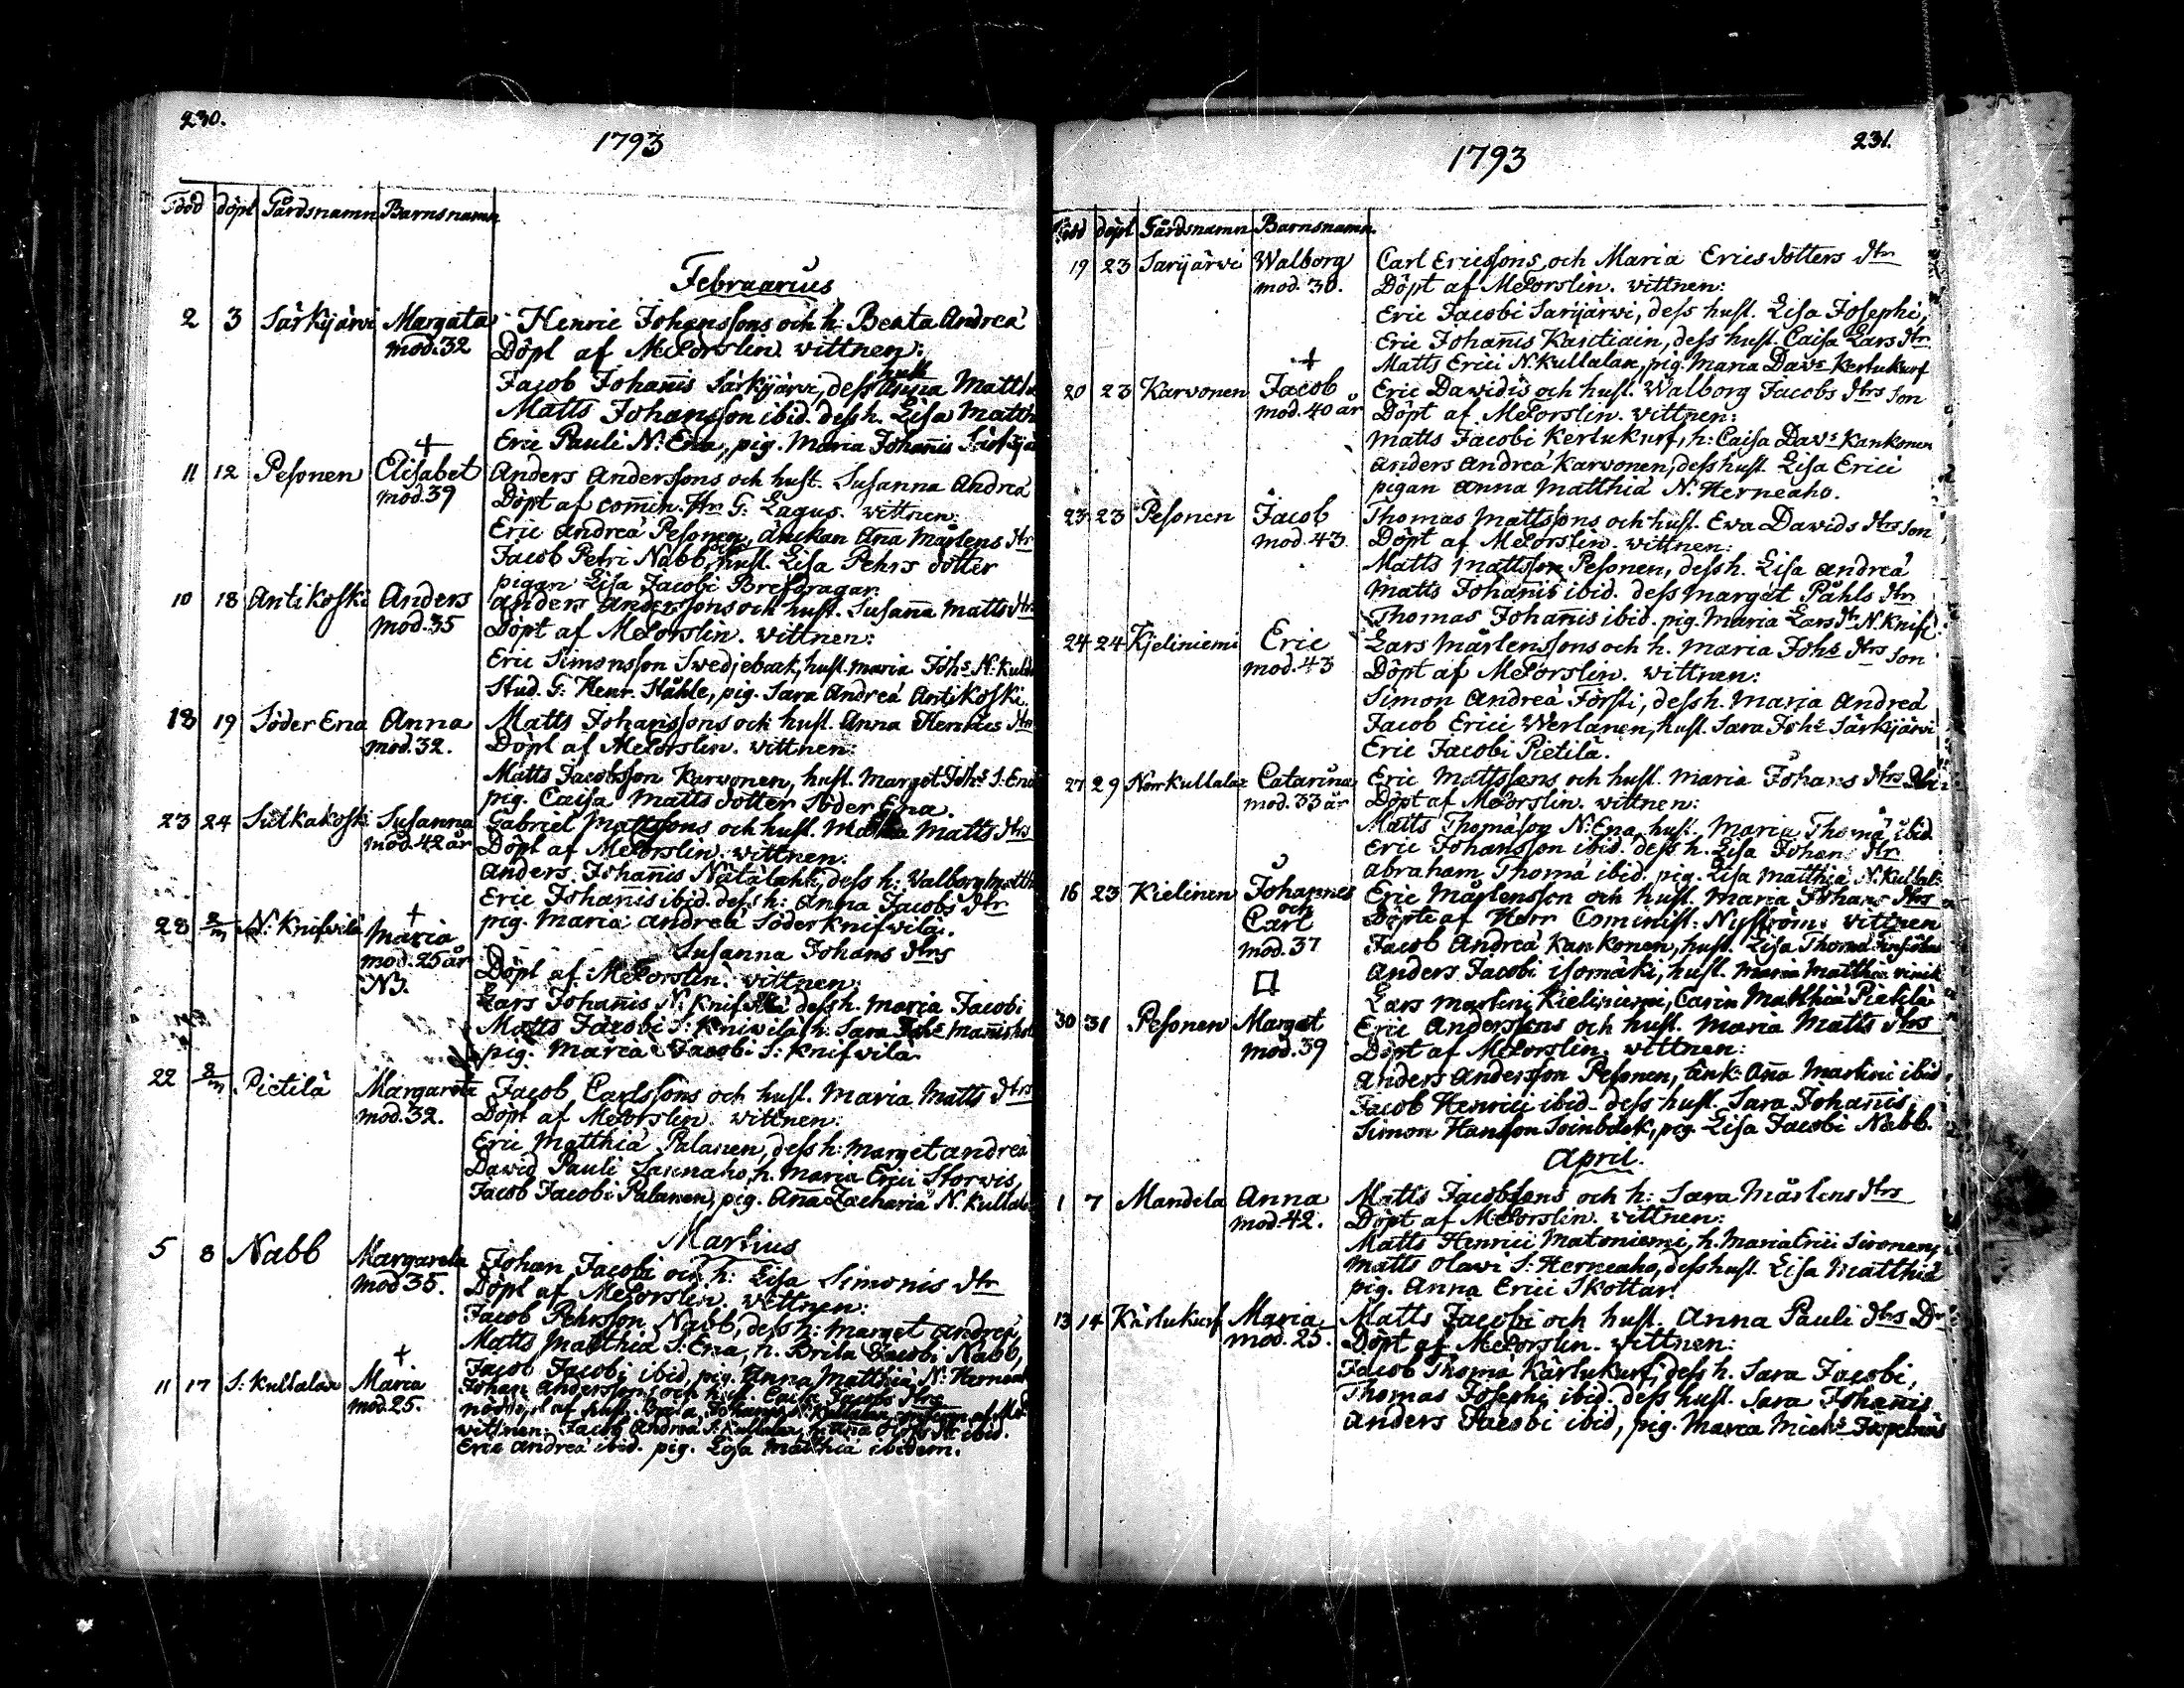 230.
1793
Född döpt Gårdsnamn Barnsnamn
Februarius
2 3 Särkijärvi Margata Henric Johanssons och h: Beata Andreä
mod. 32 Döpt af McLorslin. vittnen:
Jacob Johañis Särkijärvi, dess hust Matth
Matts Johansson ibid. dess h. Lisa Matth
Eric Pauli N: Ena, pig. Maria Johañis Särkijä
+
11 12 Pesonen Elisabet Anders Anderssons och hust. Susanna Andreä
mod. 39 Döpt af comin. Hr G: Lagus. vittnen:
Eric Andreä Pesonen, änckan Aña Mårtens dtr
Jacob Petri Nabb, hust. Lisa Pehrs dotter
pigan Lisa Jacobi Brefdragar.
10 18 Antikoski Anders Anders Anderssons och hust. Susaña Matts dtr
mod. 35 Döpt af McLorslin. vittnen:
Eric Simonsson Swedjeback, hust. Maria Johs N: Kulla
Stud. G: Henr. Ståhle, pig. Sara Andreä Antikoski.
18 19 Söder Ena Anna Matts Johanssons och hust. Anna Henrics dtr
mod. 32. Döpt af McLorslin. vittnen:
Matts Jacobsson Karvonen, hust. Marget Johs S: Ena
pig. Caisa Matts dotter Söder Ena.
23 24 Sulkakoski Susanna Gabriel Mattssons och hust. Maria Matts dtrs
mod. 42 år Döpt af McLorslin. vittnen:
Anders Johañis Nätälahti, dess h: Valborg Matth
Eric Johañis ibid. dess h: Anna Jacobs dtr
pig. Maria Andreä Söder Knifwilä.
+
28 2/m N: Knifvilä Maria Susanna Johans dtrs
mod. 25 år Döpt af McLorslin. vittnen:
NB. Lars Johañis N: Knifvilä dess h. Maria Jacobi
Matts Jacobi S: Knivilä h: Sara Johs
pig. Maria Jacobi S: Knifvilä
22 2/m Pietilä Margareta Jacob Carlssons och hust. Maria Matts dtrs
mod. 32. Döpt af McLorslin. vittnen:
Eric Matthiä Palanen, dess h: Marget Andreä
David Pauli Lannaho, h. Maria Erici Storvis,
Jacob Jacobi Palanen, pig. Aña Zachariä N. Kullala
Martius
5 8 Nabb Margareta Johan Jacobi och h: Lisa Simonis dtr
mod 35. Döpt af McLorslin. vittnen:
Jacob Pehrsson Nabb, dess h: Marget Andreä,
Matts Matthiä S: Ena, h. Brita Jacobi Nabb,
Jacob Jacobi ibid, pig. Anna Matthiä N: Herneah
+
11 17 S: Kullalax Maria Johan Anderssons och hust. Caisa Jacobs dtrs
mod. 25. nöddöpt af hust. Johans N: Kullalax, confirm. af McL
vittnen: Jacob Andreä S: Kullalax, ibid.
Eric Andreä ibid. pig. Lisa Matthiä ibidem.
231.
1793
Född döpt Gårdsnamn Barnsnamn
19 23 Sarijärvi Walborg Carl Ericssons och Maria Erics dotters dtr
mod. 30. Döpt af McLorslin. vittnen:
Eric Jacobi Sarijärvi, dess hust. Lisa Josephi,
Eric Johañis Kastiain, dess hust. Caisa Lars dtr
Matts Erici N. Kullalax, pig. Maria Davs Kertukurf
+
20 23 Karvonen Jacob Eric Davidis och hust. Walborg Jacobs dtrs son
mod. 40 år Döpt af McLorslin. vittnen:
Matts Jacobi Kertukurf, h: Caisa Davs Kankonen
Anders Andreä Karvonen, dess hust. Lisa Erici
pigan Anna Matthiä N: Herneaho.
23. 23 Pesonen Jacob Thomas Mattssons och hust. Eva Davids dtrs son
mod. 43. Döpt af McLorslin. vittnen:
Matts Mattsson Pesonen, dess h. Lisa Andreä
Matts Johañis ibid. dess Marget Påhls dtr
Thomas Johañis ibid. pig. Maria Lars dr N. Knifv.
24 24 Kjeliniemi Eric Lars Mårtenssons och h. Maria Johs dtrs son
mod. 43 Döpt af McLorslin. vittnen:
Simon Andreä Försti, dess h. Maria Andreä
Jacob Erici Werlanen, hust. Sara Johs Särkijärvi
Eric Jacobi Pietilä.
27 29 Norrkullalax Catarina Eric Mattssons och hust. Maria Johans dtrs
mod. 33 år Döpt af McLorslin. vittnen:
Matts Thomäson N: Ena, hust. Maria Thomä ibid
Eric Johansson ibid. dess h. Lisa Johan: dtr
Abraham Thomä ibid. pig. Lisa Matthiä N: Kullal:
16 23 Kielinen Johannes Eric Mårtensson och hust. Maria Johans dtrs
och Döpte af Herr Cominist. Nyström: vittnen
Carl Jacob Andreä Kankonen, hust. Lisa Thomä
mod. 37 Anders Jacobi isomäki, hust. Maria Matthiä
Lars Martini Kieliniemi, Carin Matthiä Pietilä
30 31 Pesonen Marget Eric Anderssons och hust. Maria Matts dtrs
mod. 39 Döpt af McLorslin. vittnen:
Anders Andersson Pesonen, änk: Aña Martini ibid
Jacob Henrici ibid. dess hust. Sara Johañis,
Simon Hansson Svinbäck, pig. Lisa Jacobi Nabb.
April.
1 7 Mandela Anna Matts Jacobsons och h: Sara Mårtens dtrs
mod. 42. Döpt af McLorslin. vittnen:
Matts Henrici Matoniemi, h. Maria Erici Sironen,
Matts Olavi S: Herneaho, dess hust. Lisa Matthiä
pig. Anna Erici Skottar.
13 14 Kärtukurf Maria Matts Jacobi och hust. Anna Pauli dtrs Dr
mod. 25. Döpt af McLorslin. vittnen:
Jacob Thomä Kärtukurf, dess h. Sara Jacobi,
Thomas Josephi ibid. dess hust. Sara Johañis
Anders Jacobi ibid, pig. Maria Michs